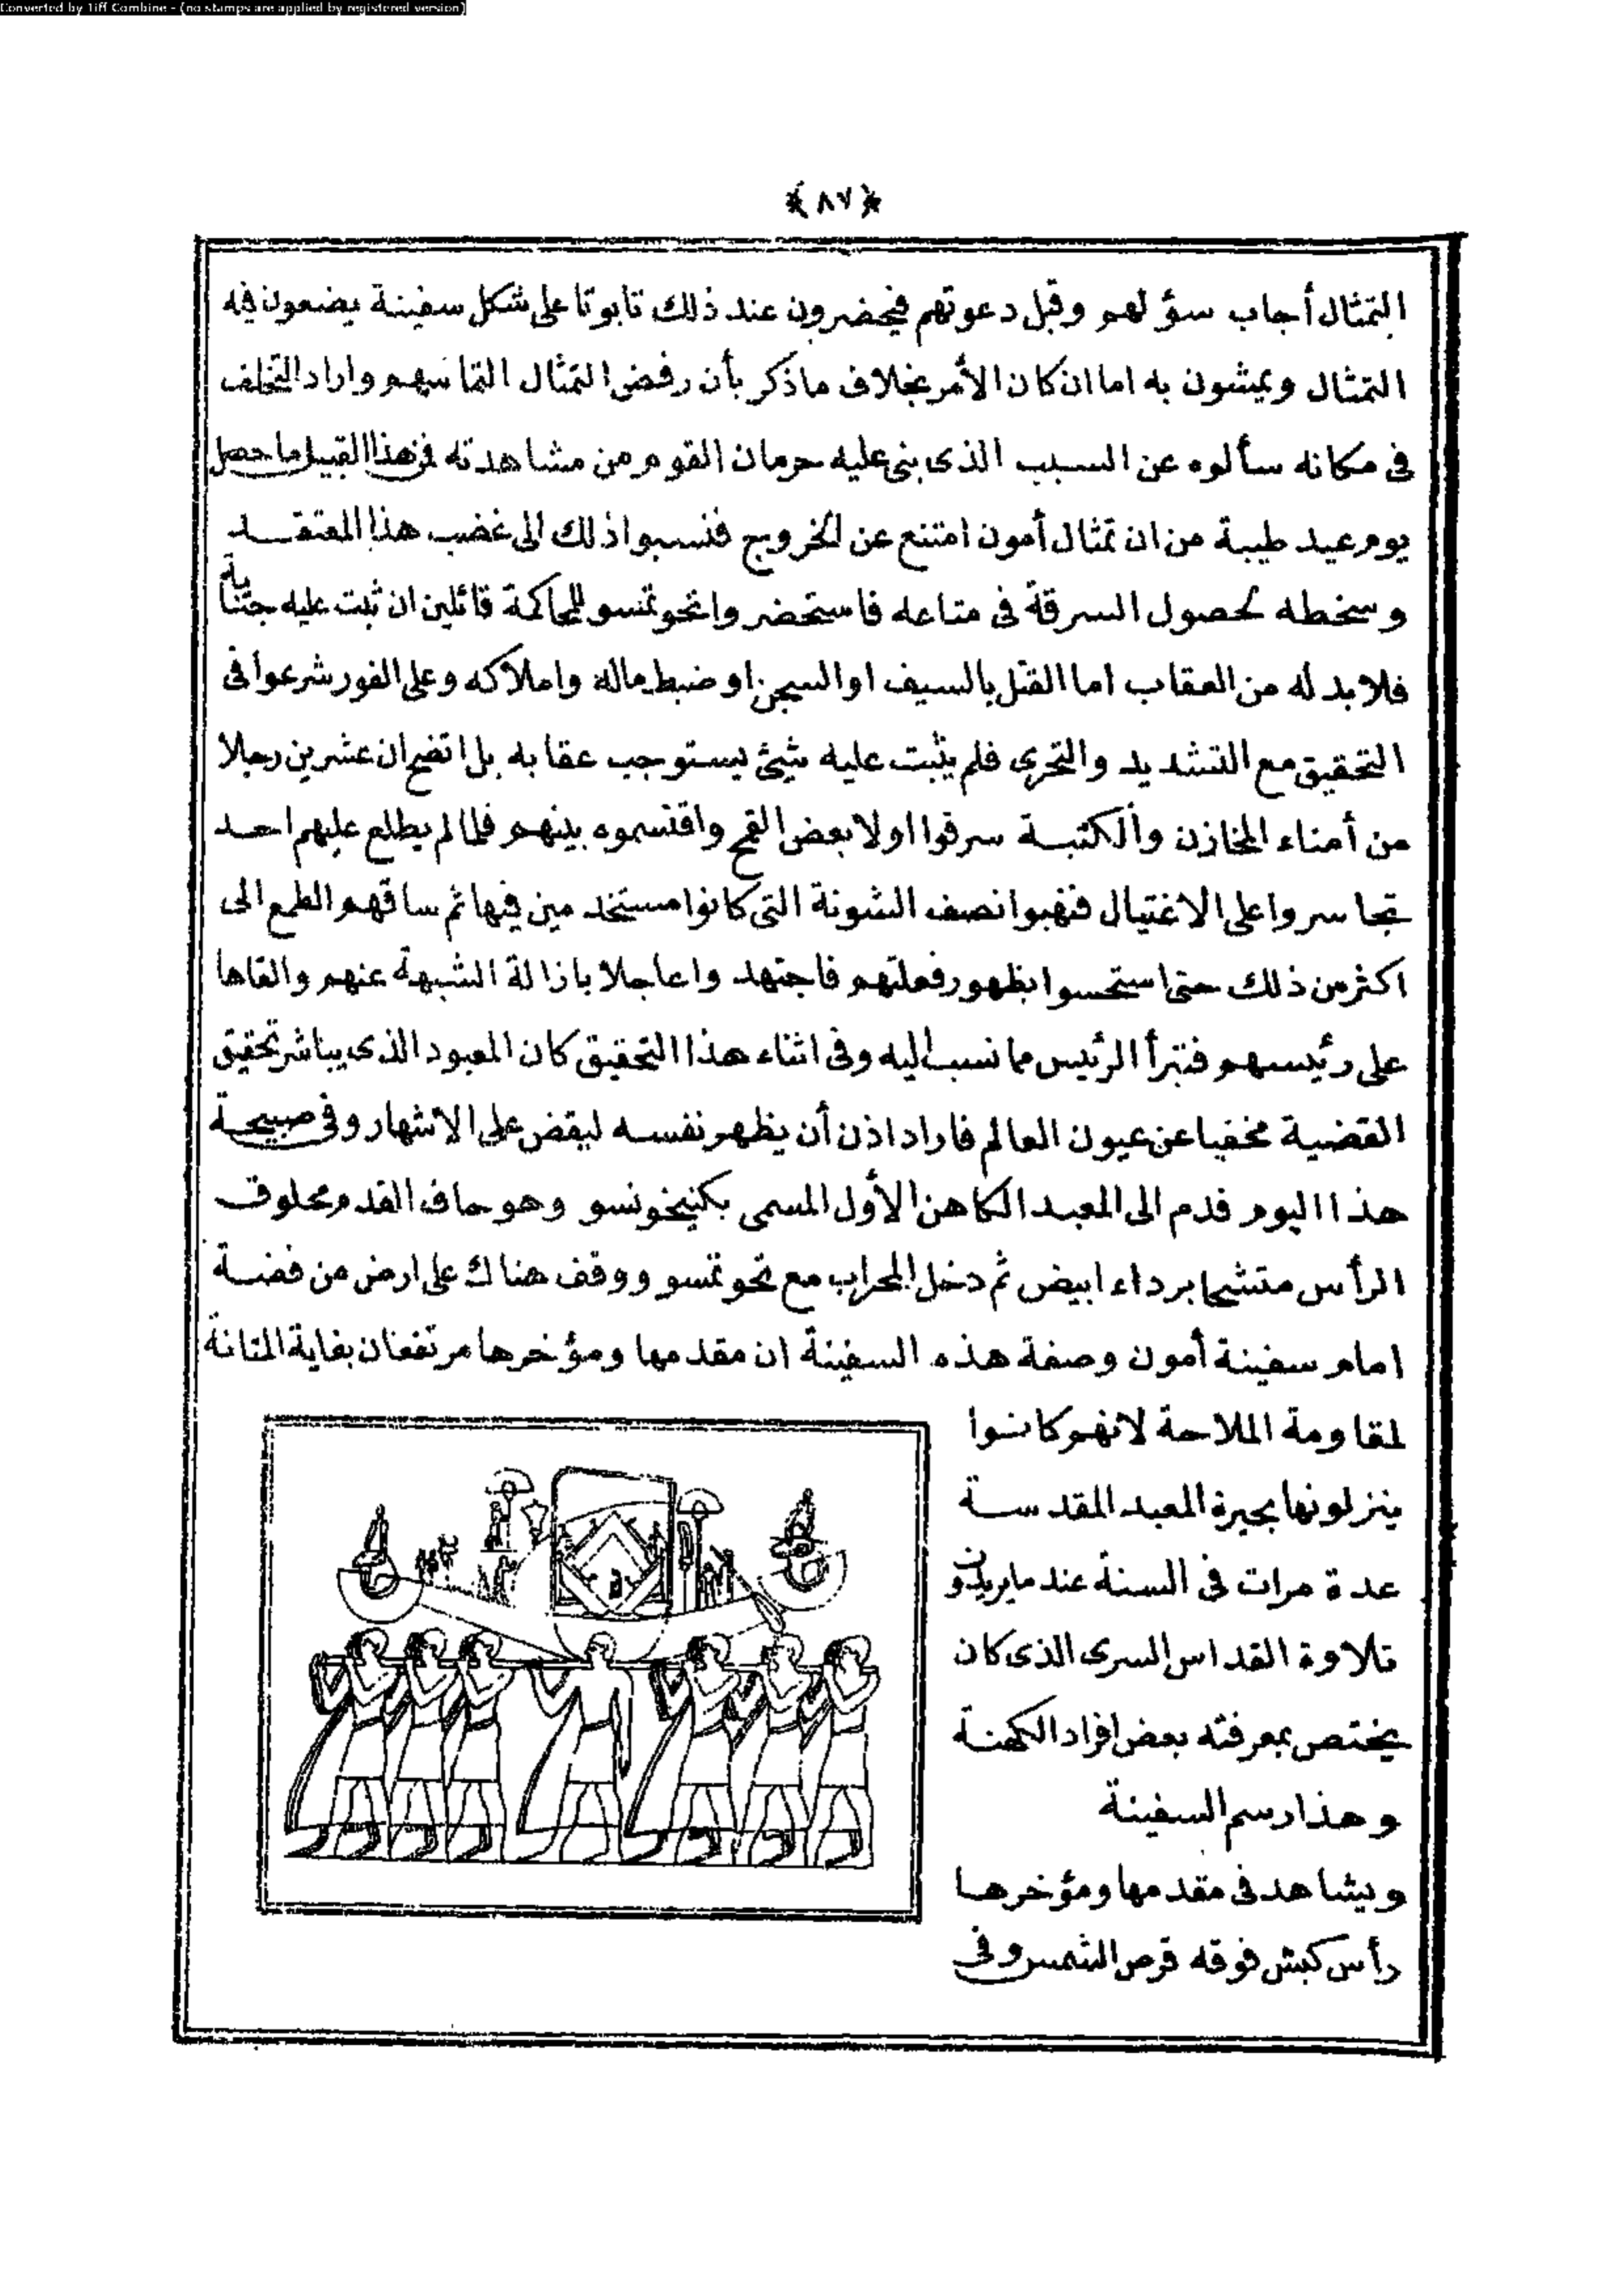 Converted by Tiff Combine - (no stamps are applied by registered version)
﴿٨٧﴾
التمثال أجاب سؤلهم وقبل دعوتهم فيحضرون عند ذلك تابوتا على شكل سفينة يضعون فيه
التمثال ويمشون به اما ان كان الأمر بخلاف ماذكر بأن رفض التمثال التماسهم واراد التخلف
فى مكانه سألوه عن السبب الذى بنى عليه حرمان القوم من مشاهدته فمن هذا القبيل ما حصل
يوم عيد طيبة من ان تمثال أمون امتنع عن الخروج فنسبوا ذلك الى غضب هذا المعتقد
وسخطه لحصول السرقة فى متاعه فاستحضروا تحوتمسو للمحاكمة قائلين ان ثبت عليه جناية
فلابد له من العقاب اما القتل بالسيف او السجن او ضبط ماله واملاكه وعلى الفور شرعوا فى
التحقيق مع التشديد والتحرى فلم يثبت عليه شيئ يستوجب عقابه بل اتضح ان عشرين رجلا
من أمناء المخازن والكتبة سرقوا اولا بعض القمح واقتسموه بينهم فلما لم يطلع عليهم احد
تجاسروا على الاغتيال فنهبوا نصف الشونة التى كانوا مستخدمين فيها ثم ساقهم الطمع الى
اكثر من ذلك حتى استحسوا بظهور فعلتهم فاجتهدوا عاجلا بازالة الشبهة عنهم والقاها
على رئيسهم فتبرأ الرئيس مما نسب اليه وفى اثناء هذا التحقيق كان المعبود الذى يباشر تحقيق
القضية مخفيا عن عيون العالم فاراد اذن أن يظهر نفسه ليقض على الاشهار وفى صبيحة
هذا اليوم قدم الى المعبد الكاهن الأول المسمى بكنيخونسو وهو حاف القدم محلوق
الرأس متشحا برداء ابيض ثم دخل المحراب مع تحوتمسو ووقف هناك على ارض من فضة
امام سفينة أمون وصفة هذه السفينة ان مقدمها ومؤخرها مرتفعان بغاية المتانة
لمقاومة الملاحة لانهم كانوا
ينزلونها بحيرة المعبد المقدسة
عدة مرات فى السنة عند مايريدون
تلاوة القداس السرى الذى كان
يختص بمعرفته بعض افراد الكهنة
وهذا رسم السفينة
ويشاهد فى مقدمها ومؤخرها
رأس كبش فوقه قرص الشمس وفى